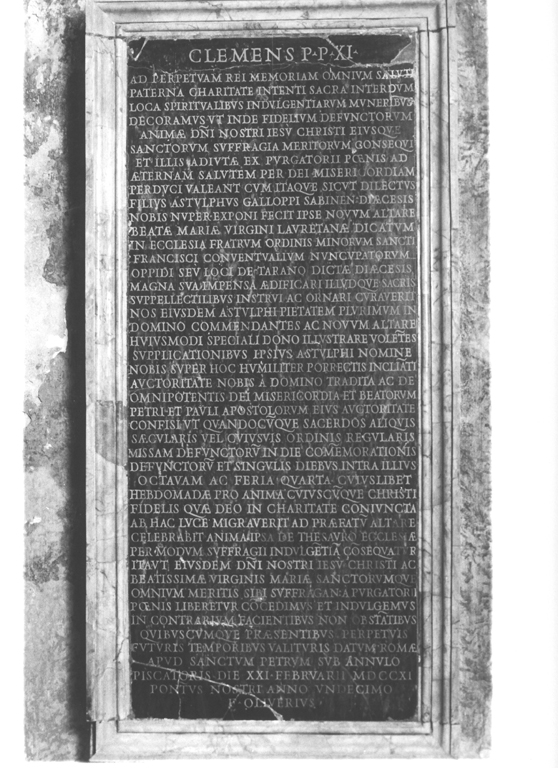 CLEMENS P·P·XI·
AD PERPETVAM REI MEMORIAM OMNIVM SALVTI
PATERNA CHARITATE INTENTI SACRA INTERDVM
LOCA SPIRITVALIBVS INDVLGENTIARVM MVNERIBVS
DECORAMVS VT INDE FIDELIVM DEFVNCTORVM
ANIMÆ DN̄I NOSTRI IESV CHRISTI EIVSQVE
SANCTORVM SVFFRAGIA MERITORVM CONSEQVI
ET ILLIS ADIVTÆ EX PVRGATORII PŒNIS AD
ÆTERNAM SALVTEM PER DEI MISERICORDIAM
PERDVCI VALEANT CVM ITAQVE SICVT DILECTVS
FILIVS ASTVLPHVS GALLOPPI SABINEN DIÆCESIS
NOBIS NVPER EXPONI FECIT IPSE NOVVM ALTARE
BEATÆ MARIÆ VIRGINI LAVRETANÆ DICATVM
IN ECCLESIA FRATRVM ORDINIS MINORVM SANCTI
FRANCISCI CONVENTVALIVM NVNCVPATORVM
OPPIDI SEV LOCI DE TARANO DICTÆ DIÆCESIS
MAGNA SVA IMPENSA ÆDIFICARI ILLVDQVE SACRIS
SVPPELLECTILIBVS INSTRVI AC ORNARI CVRAVERIT
NOS EIVSDEM ASTVLPHI PIETATEM PLVRIMVM IN
DOMINO COMMENDANTES AC NOVVM ALTARE
HVIVSMODI SPECIALI DONO ILLVSTRARE VOLĒTES
SVPPLICATIONIBVS EPSIVS ASTVLPHI NOMINE
NOBIS SVPER HOC HVMILITER PORRECTIS INCLIATI
AVCTORITATE NOBIS A DOMINO TRADITA AC DE
OMNIPOTENTIS DEI MISERICORDIA ET BEATORVM
PETRI ET PAVLI APOSTOLORVM EIVS AVCTORITATE
CONFISI VT QVANDOCVQVE SACERDOS ALIQVIS
SÆCVLARIS VEL QVIVSVIS ORDINIS REGVLARIS
MISSAM DEFVNCTORV IN DIE COMEMORATIONIS
DEFVNCTORV ET SINGVLIS DIEBVS INTRA ILLIVS
OCTAVAM AC FERIA QVARTA CVIVSLIBET
HEBDOMADÆ PRO ANIMA CVIVSCVQVE CHRISTI
FIDELIS QVÆ DEO IN CHARITATE CONIVNCTA
AB HAC LVCE MIGRAVERIT AD PRÆFATV ALTARE
CELEBRABIT ANIMA IPSA DE THESAVRO ECCLESIÆ
PER MODVM SVFFRAGII INDVLGETIĀ COSEQVATVR
ITAVT EIVSDEM DN̄I NOSTRI IESV CHRISTI AC
BEATISSIMÆ VIRGINIS MARIÆ SANCTORVMQVE
OMNIVM MERITIS SIBI SVFFRAGAN A PVRGATORII
PŒNIS LIBERETVR COCEDIMVS ET INDVLGEMVS
IN CONTRARIVM FACIENTIBVS NON OBSTATIBVS
QVIBVSCVMQVE PRÆSENTIBVS PERPETVIS
FVTVRIS TEMPORIBVS VALITVRIS DATVM ROMÆ
APVD SANCTVM PETRVM SVB ANNVLO
PISCATORIS DIE XXI FEBRVARII MDCCXI
PONTVS NOSTRI ANNO VNDECIMO
F· OLIVERIVS·